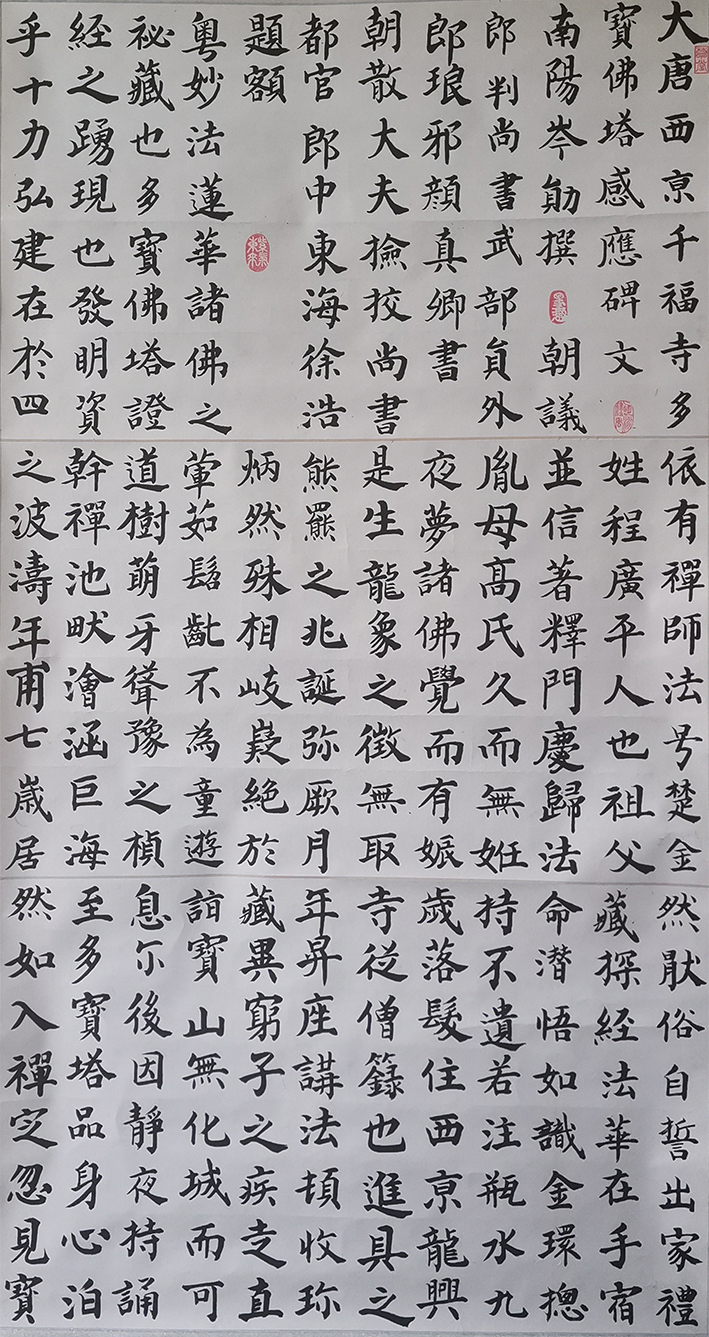 大唐西亰千福寺多
寶佛塔感應碑文
南陽岑勛撰 朝議
郎判尚書武部員外
郎琅邪顏真卿書
朝散大夫撿挍尚書
都官郎中東海徐浩
題額
粵妙法蓮華諸佛之
祕藏也多寶佛塔證
經之踴現也發明資
乎十力弘建在於四
依有禪師法号楚金
姓程廣平人也祖父
並信著釋門慶歸法
胤母髙氏久而無姙
夜夢諸佛覺而有娠
是生龍象之徵無取
熊羆之兆誕弥厥月
炳然殊相岐嶷絕於
葷茹髫齔不為童遊
道樹萌牙聳豫之楨
幹禪池畎澮涵巨海
之波濤年甫七歲居
然猒俗自誓出家禮
藏探經法華在手宿
命潛悟如識金環揔
持不遺若注瓶水九
歲落髮住西亰龍興
寺從僧籙也進具之
年昇座講法頓收珎
藏異窮子之疾走直
詣寶山無化城而可
息尒後因靜夜持誦
至多寶塔品身心泊
然如入禪定忽見寶